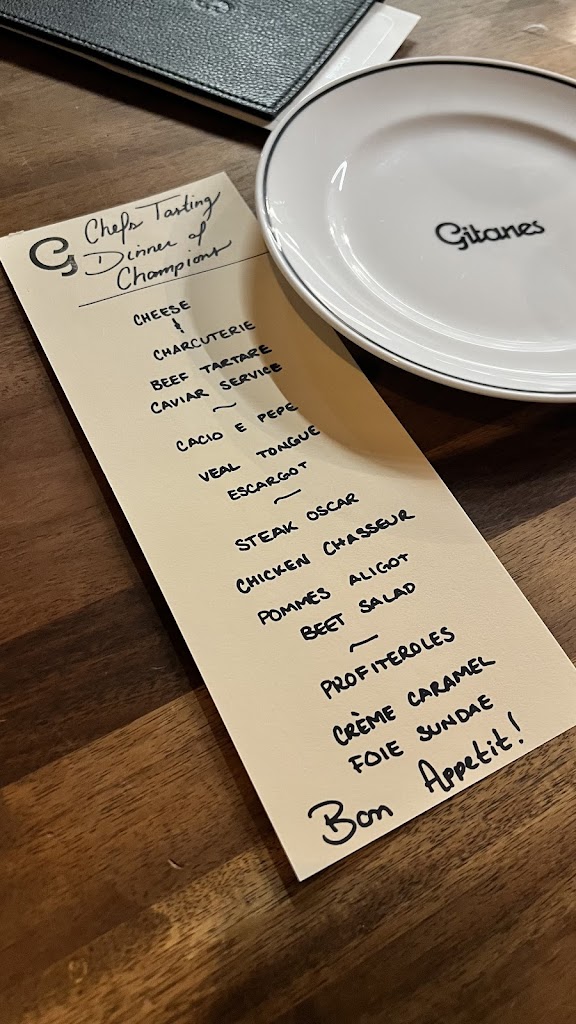 G
Chefs Tasting
Dinner of
Champions
CHEESE
&
CHARCUTERIE
BEEF TARTARE
CAVIAR SERVICE
~
CACIO E PEPE
VEAL TONGUE
ESCARGOT
~
STEAK OSCAR
CHICKEN CHASSEUR
POMMES ALIGOT
BEET SALAD
~
PROFITEROLES
CRÈME CARAMEL
FOIE SUNDAE
Bon Appetit!
Gitanes